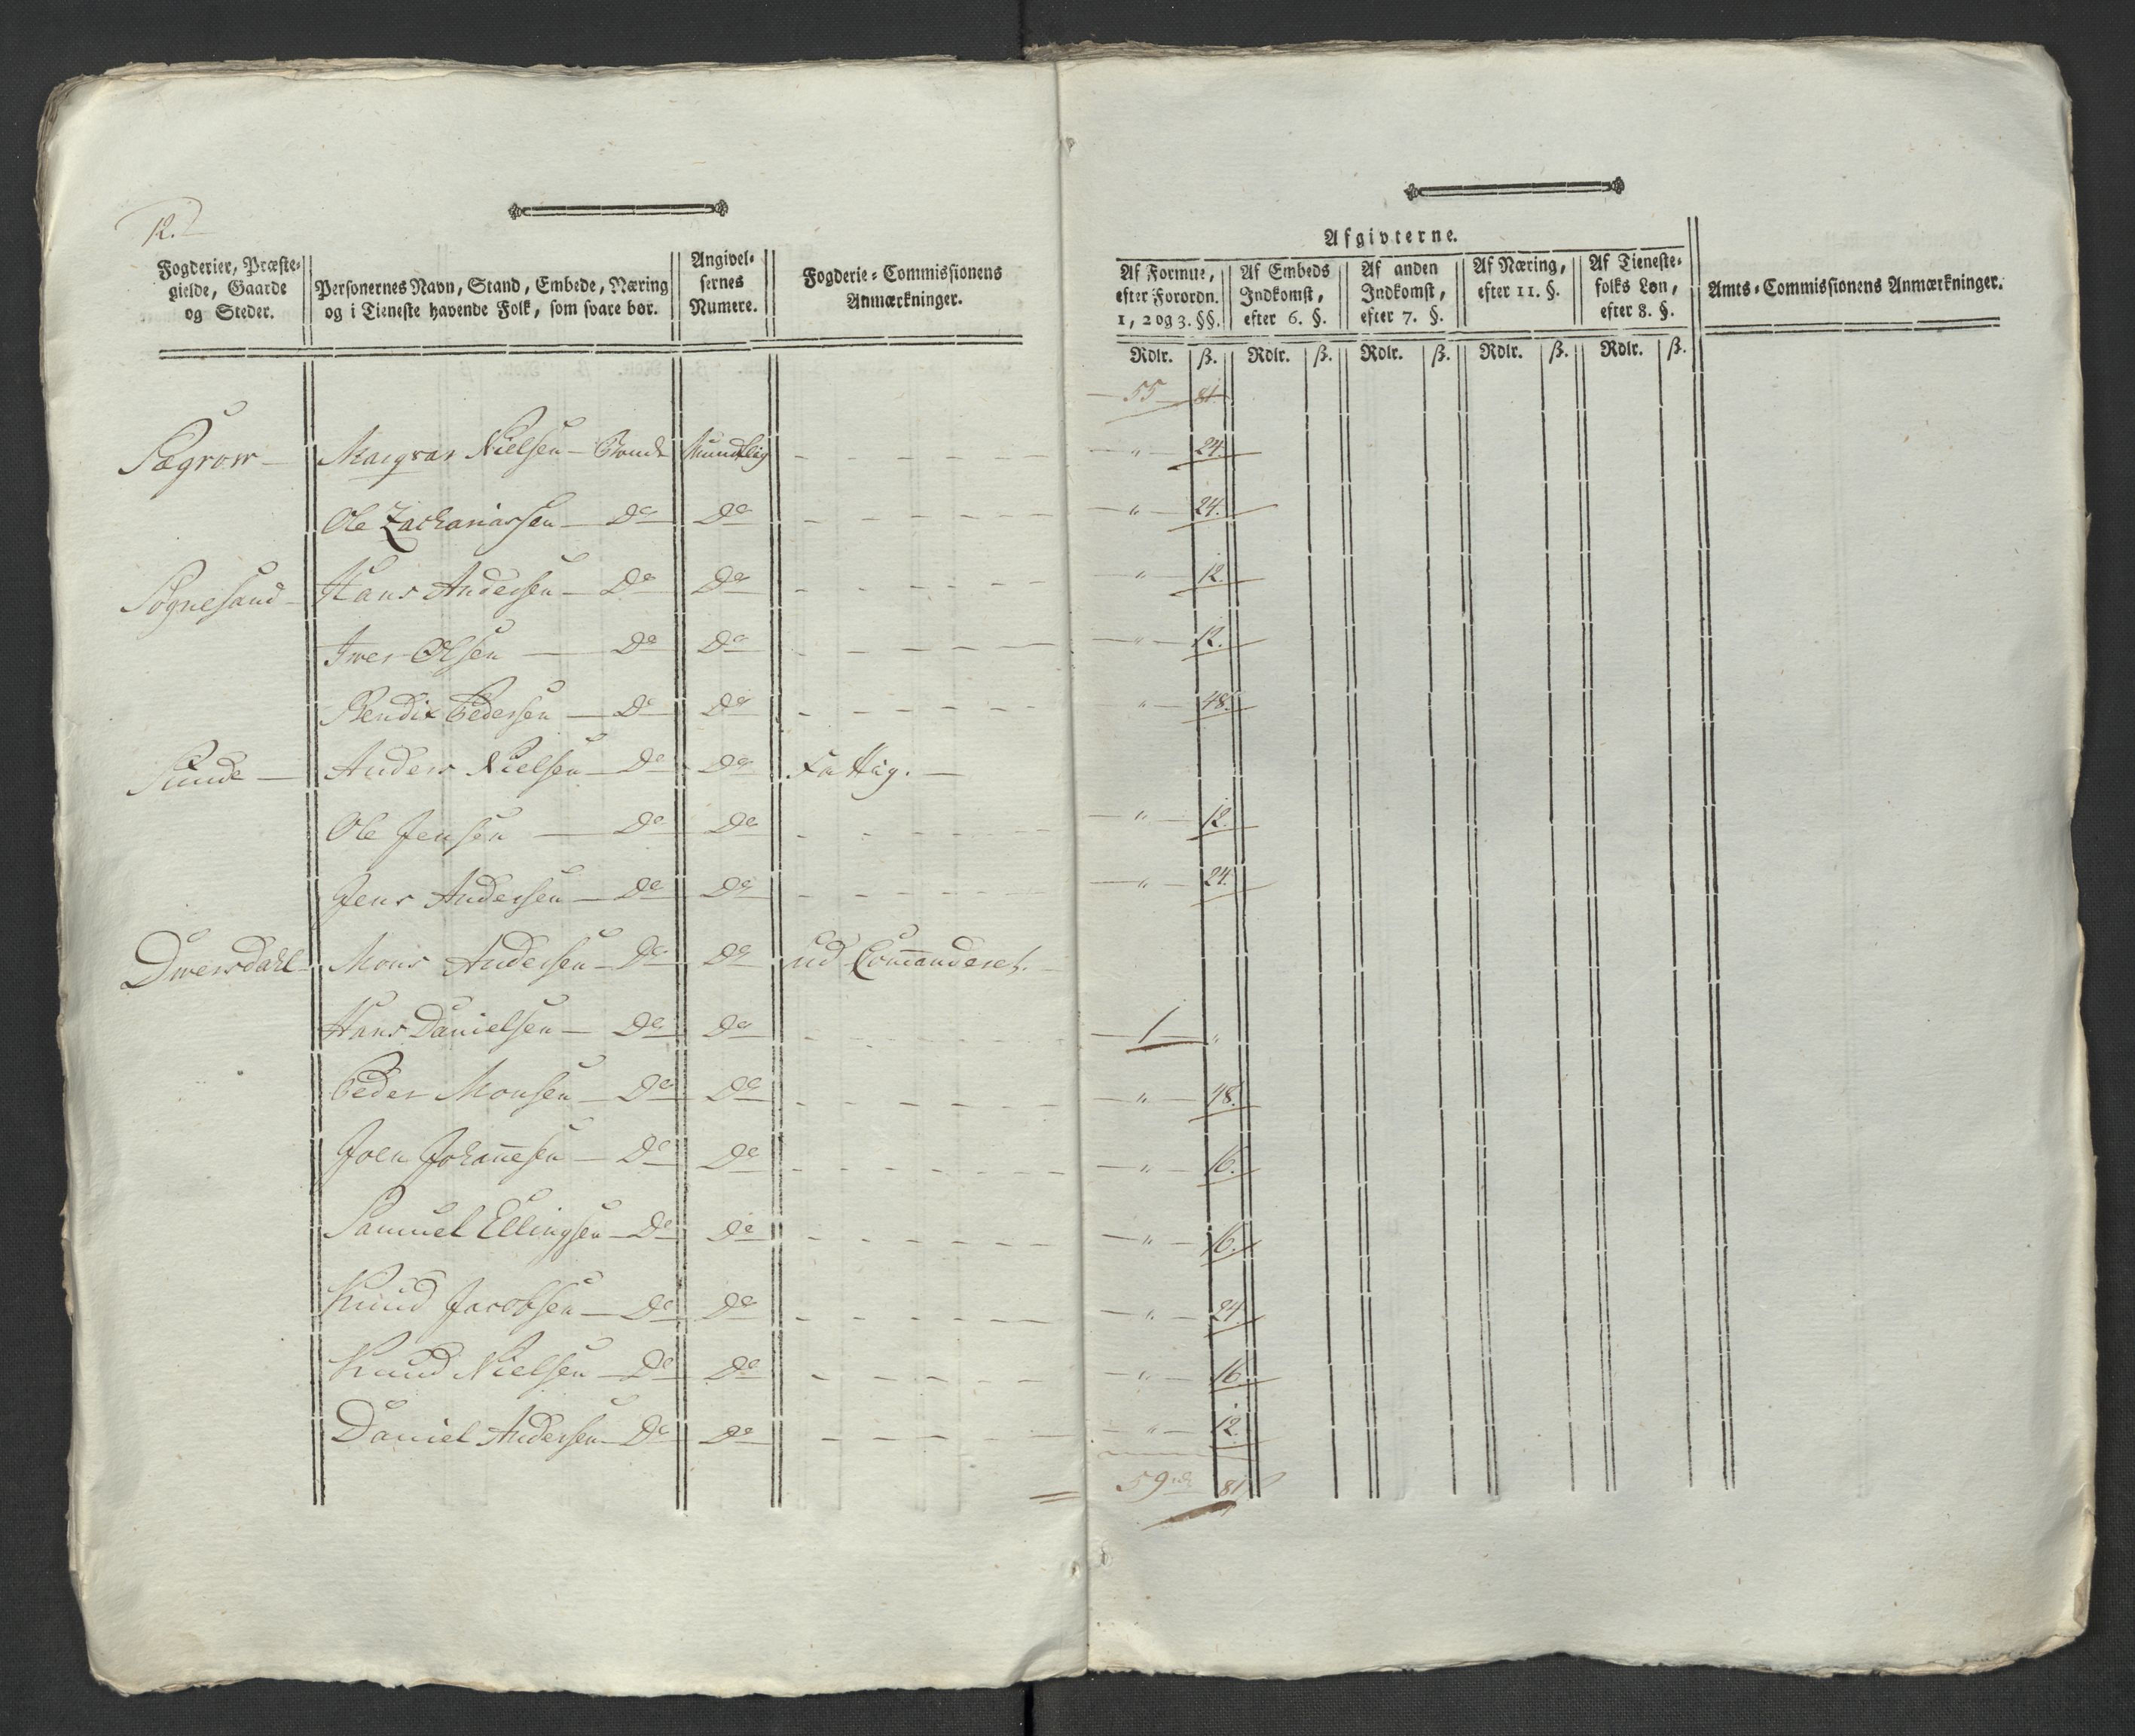 12.
Fogderier, Præste-
gielde, Gaarde
og Steder.
Personernes Navn, Stand, Embede, Næring
og i Tieneste havende Folk, som svare bør.
Angivel-
sernes
Numere.
Fogderie-Commissionens
Anmærkninger.
Afgivterne.
Af Formue,
efter Forordn.
1, 2 og 3. §§.
Af Embeds
Indkomst,
efter 6. §.
Af anden
Indkomst,
efter 7. §.
Af Næring,
efter 11. §.
Af Tieneste-
folks Løn,
efter 8. §.
Amts-Commissionens Anmærkninger.
Rdlr. ß. Rdlr. ß. Rdlr. ß. Rdlr. ß. Rdlr. ß.
55 81
Sægrow — Nielsen — Bonde Mundtlig — " — 24.
Ole Zachariassen — Do Do — " — 24.
Sognesand — Hans Andersen — Do Do — " — 12.
Iwer Olsen — Do Do — " — 12.
Bendix Pedersen — Do Do — " — 48.
Sunde — Anders Nielsen — Do Do Fattig. —
Ole Jensen — Do Do — " — 12.
Jens Andersen — Do Do — " — 24.
Dwersdahl — Mons Andersen — Do Do ud Com̄anderet.
Hans Danielsen — Do Do — 1 — "
Peder Monsen — Do Do — " — 48.
Joen Johan̄esen — Do Do — " — 16.
Samuel Ellingsen — Do Do — " — 16.
Knud Jacobsen — Do Do — " — 24.
Knud Nielsen — Do Do — " — 16.
Daniel Andersen — Do Do — " — 12.
59 rd 81